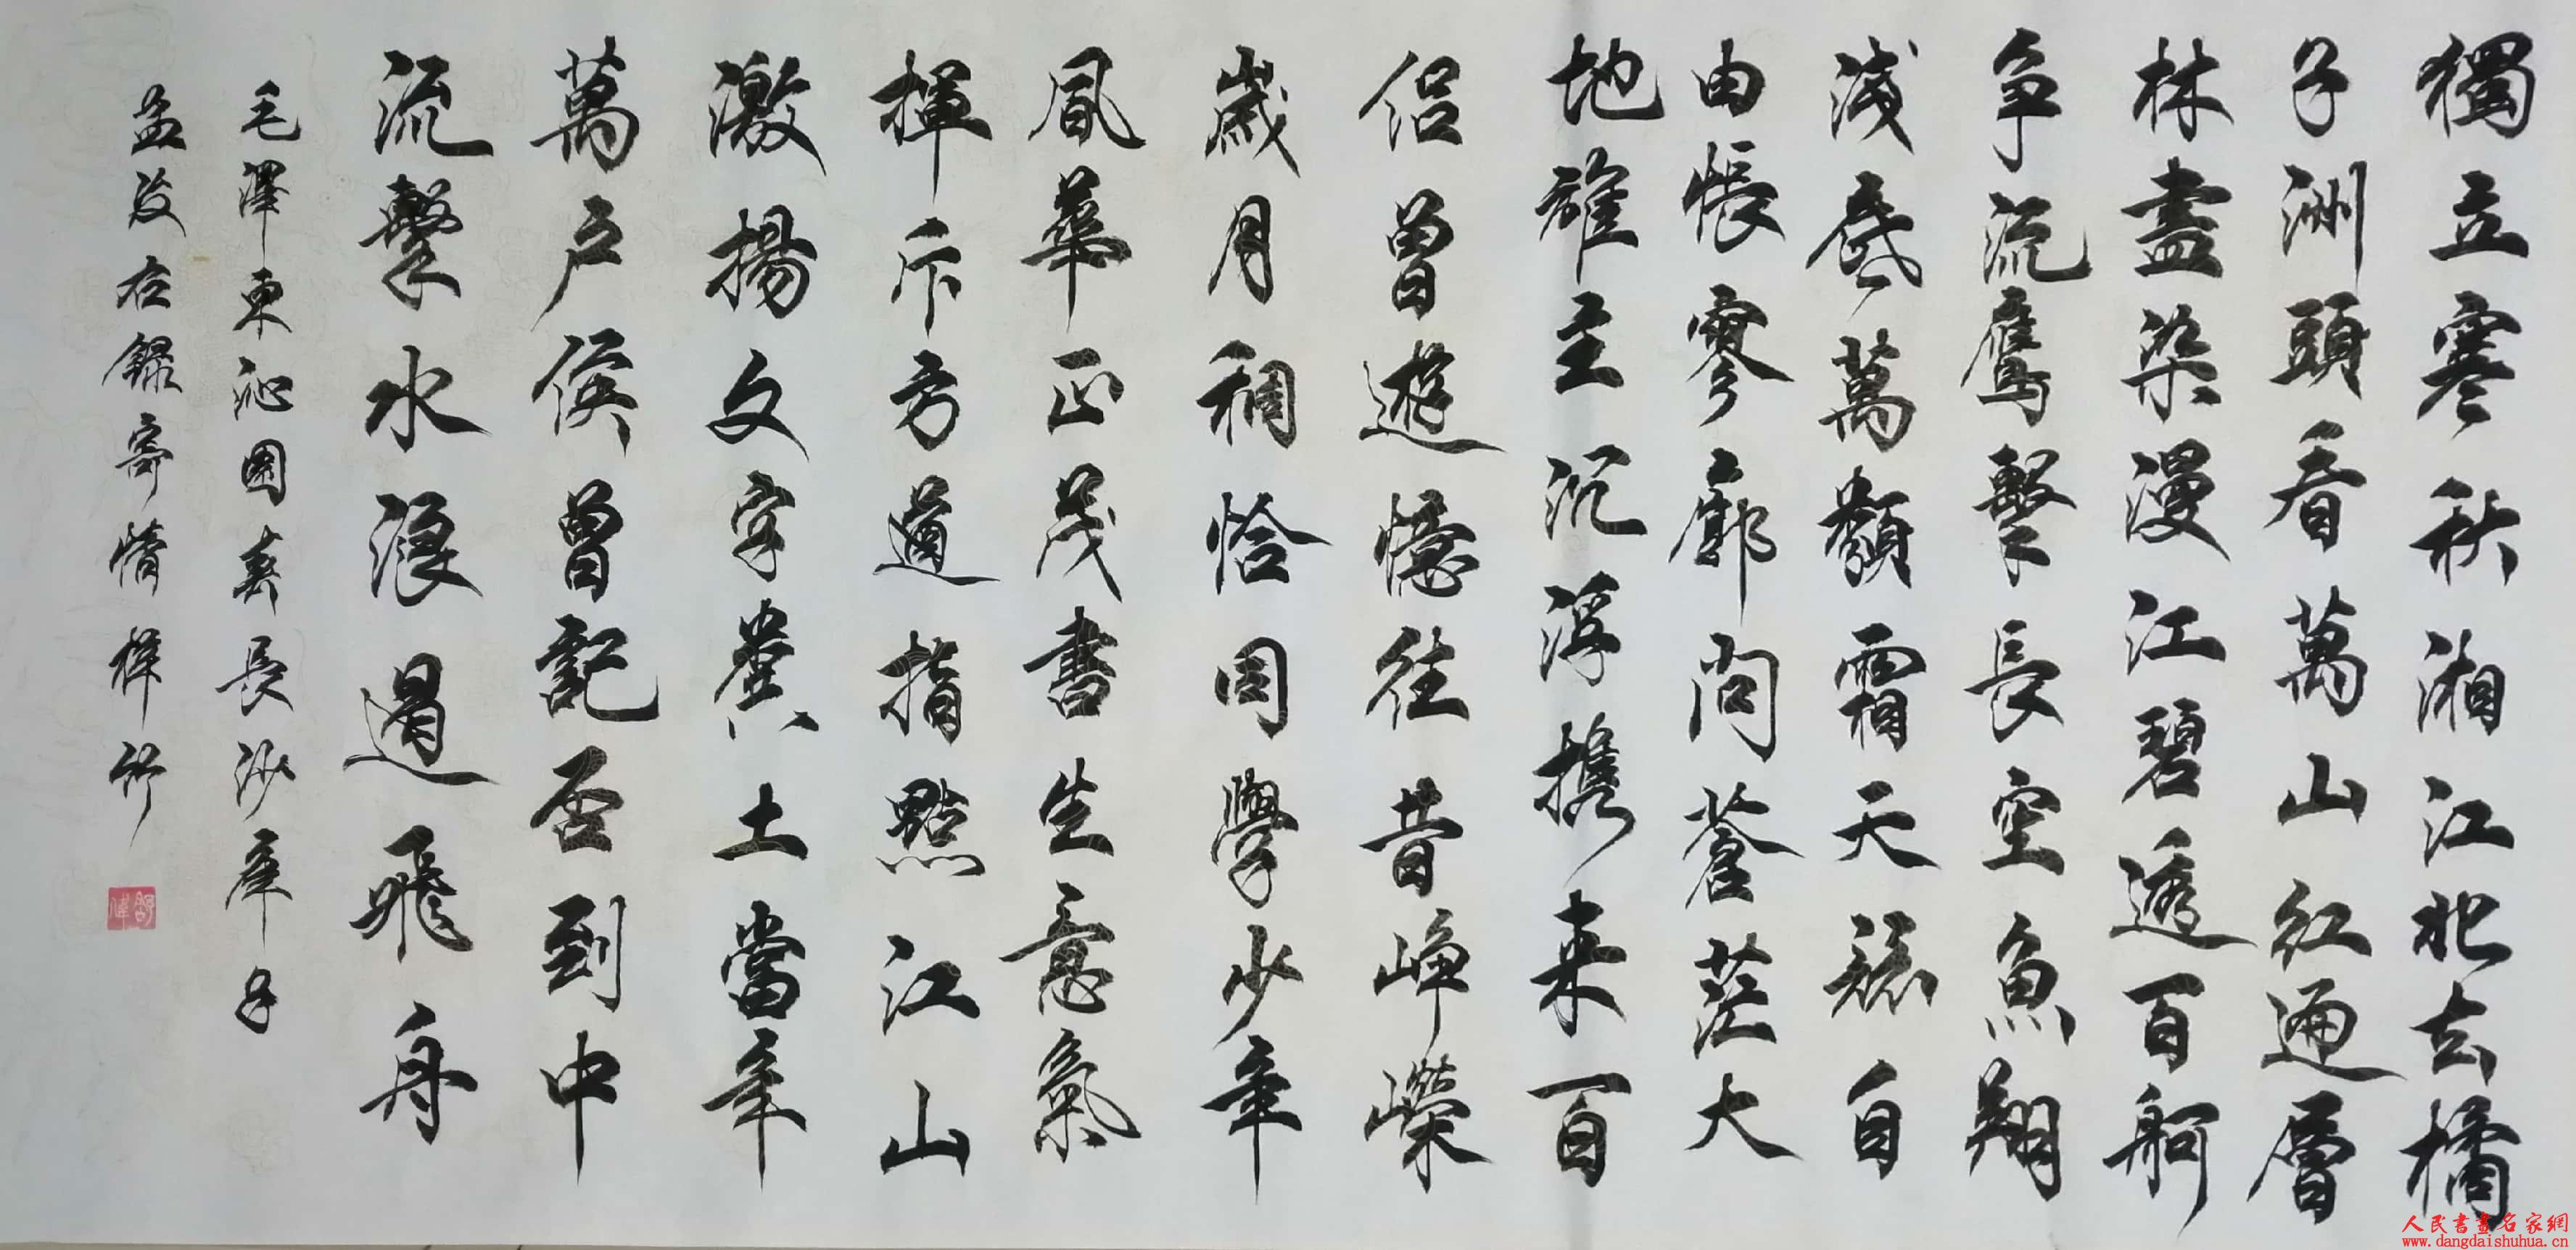 獨立寒秋湘江北去橘
子洲頭看萬山紅遍層
林盡染漫江碧透百舸
争流鷹擊長空魚翔
淺底萬類霜天競自
由悵寥廓問蒼茫大
地誰主沉浮携来百
侣曾遊憶往昔崢嶸
歲月稠恰同學少年
風華正茂書生意氣
揮斥方遒指點江山
激揚文字糞土當年
萬户侯曾記否到中
流擊水浪遏飛舟
毛澤東沁園春長沙庚子
孟夏右録寄情
人民書畫名家網
www.dangdaishuhua.cn